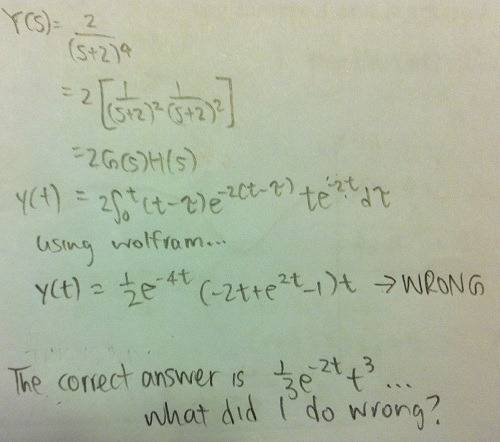 Y(s) = 2/(s+2)^4
= 2[1/(s+2)^2 1/(s+2)^2]
= 2G(s)H(s)
y(t) = 2∫_0^t (t-τ)e^{-2(t-τ)} te^{-2t} dτ
using wolfram...
y(t) = 1/2 e^{-4t} (-2t+e^{2t}-1)t → WRONG
The correct answer is 1/3 e^{-2t} t^3 ...
what did I do wrong?